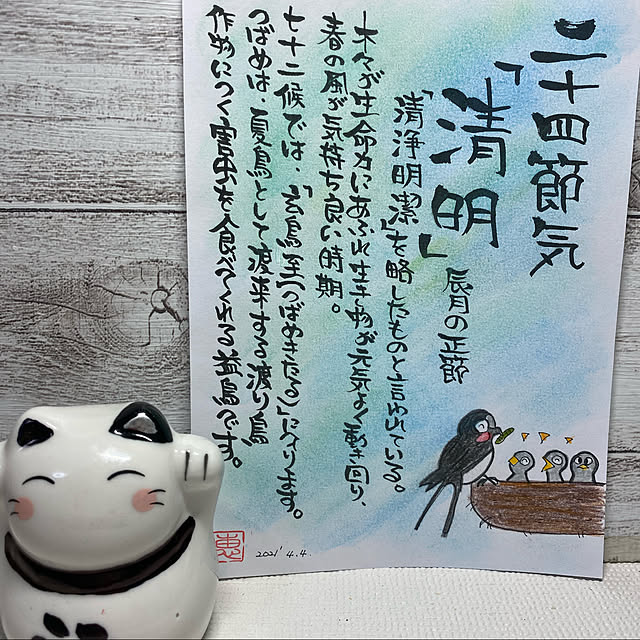 二十四節気
「清明」
辰月の正節
「清浄明潔」を略したものと言われている。
木々が生命力にあふれ生き物が元気よく動き回り、
春の風が気持ち良い時期。
七十二候では、「玄鳥至(つばめきたる)」に入ります。
つばめは、夏鳥として渡来する渡り鳥
作物につく害虫を食べてくれる益鳥です。
恵
2021' 4.4.